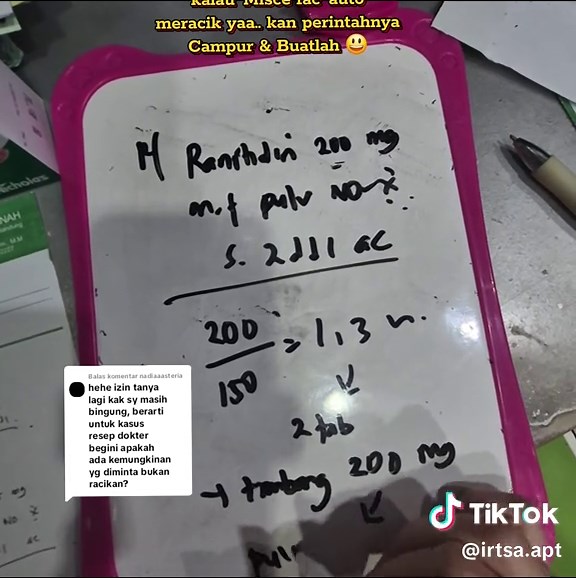 kalau "Misce fac" auto
meracik yaa.. kan perintahnya
Campur & Buatlah 😃
R/ Ranitidin 200 mg
m.f pulv no X
S. 2dd1 ac
200
150
= 1,3
2 tab
→ timbang 200 mg
cholas
NAH
Balas komentar nadiaaasteria
hehe izin tanya
lagi kak sy masih
bingung, berarti
untuk kasus
resep dokter
begini apakah
ada kemungkinan
yg diminta bukan
racikan?
mg
NO X
AC
TikTok
@irtsa.apt